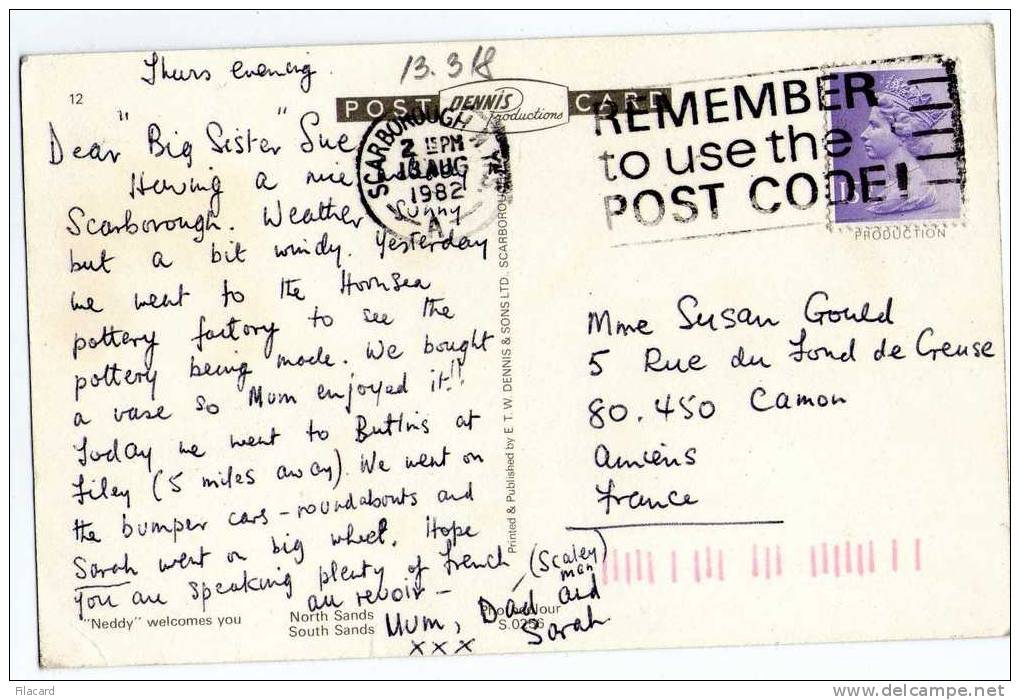 Thurs evening.
13.3/8
12
POST DENNIS Productions CARD
SCARBOROUGH N. YKS.
2 15 PM
13 AUG
1982
A
REMEMBER
to use the
POST CODE!
PRODUCTION
Dear "Big Sister" Sue
Having a nice
Scarborough. Weather Sunny
but a bit windy. Yesterday
we went to the Hornsea
pottery factory to see the
pottery being made. We bought
a vase so Mum enjoyed it!!
Today we went to Butlins at
Filey (5 miles away). We went on
the bumper cars - roundabouts and
Sarah went on big wheel. Hope
you are speaking plenty of French
au revoir -
Mum, Dad (Scaley man) and
Sarah
xxx
Printed & Published by E. T. W. DENNIS & SONS LTD., SCARBOROUGH
Mme Susan Gould
5 Rue du Fond de Creuse
80.450 Camon
Amiens
France
"Neddy" welcomes you
North Sands
South Sands
Photocolour
S.0256
Filacard
www.delcampe.net